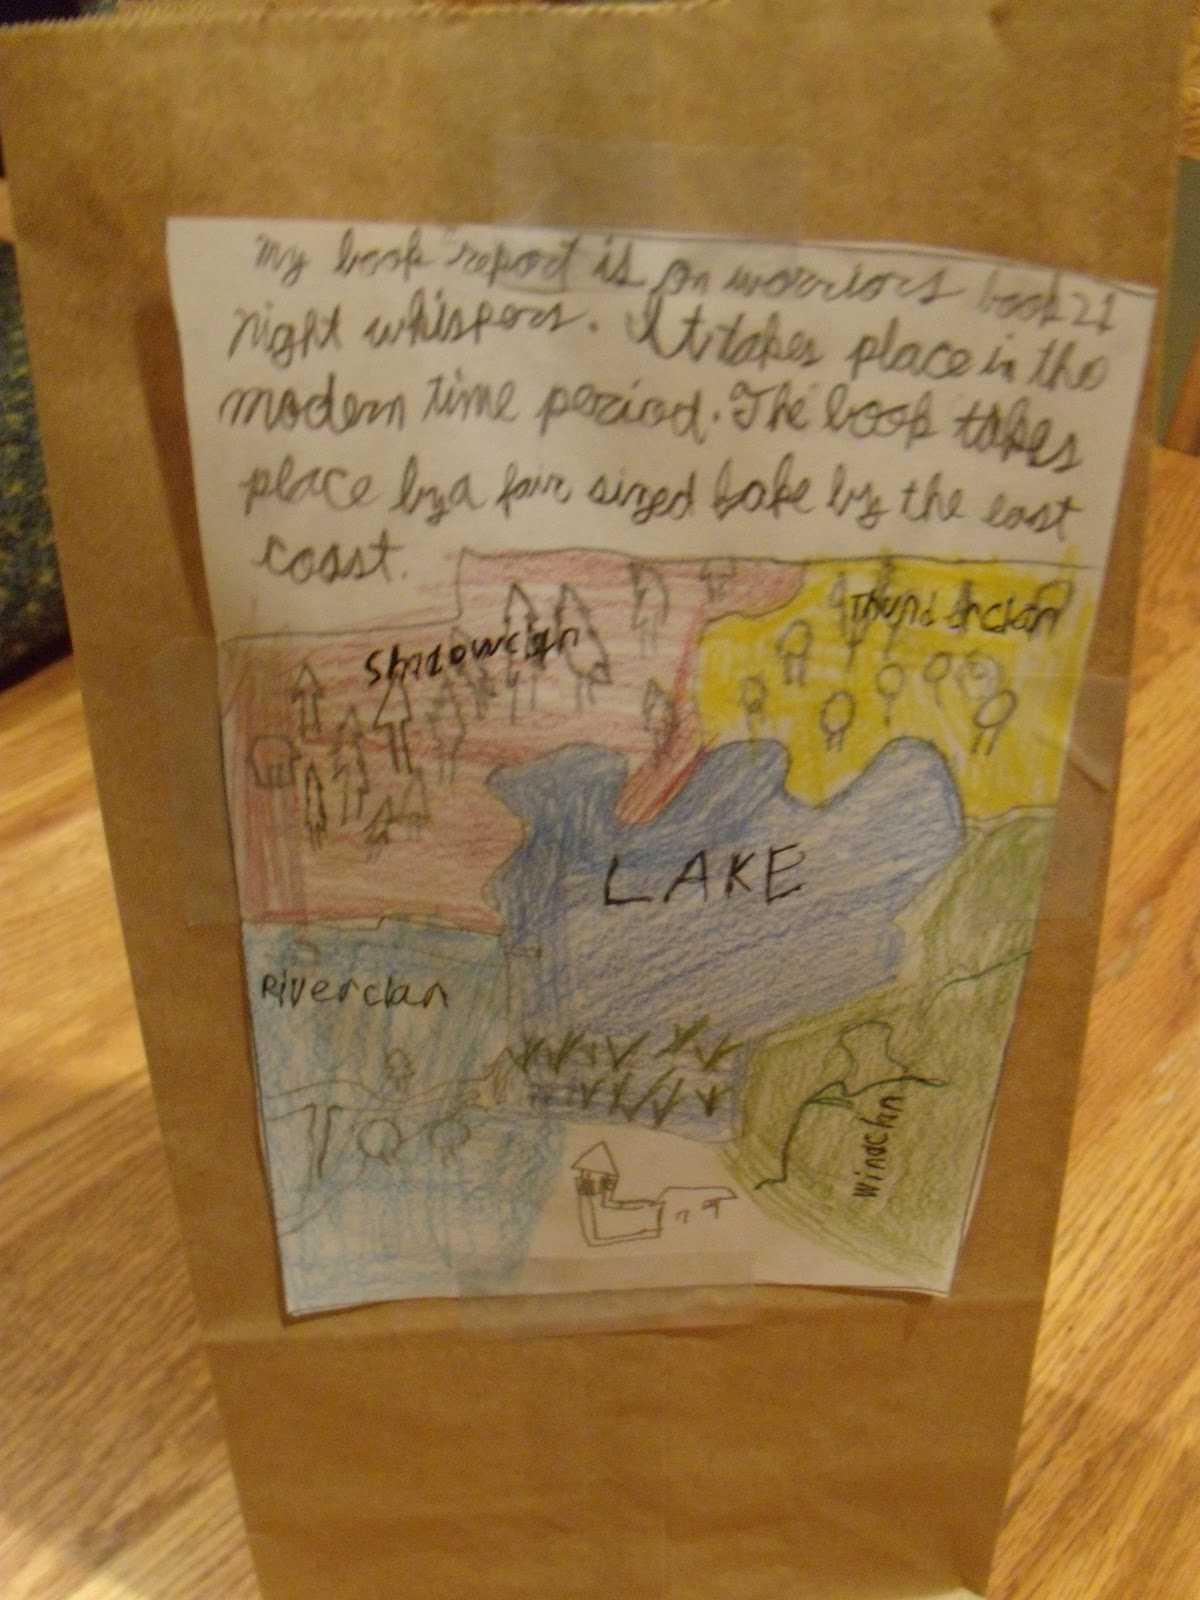 My book report is on worriors book 21
night whispers. It takes place in the
modern time period. The book takes
place by a fair sized lake by the east
coast.
Thunderclan
Shadowclan
LAKE
Riverclan
Windclan